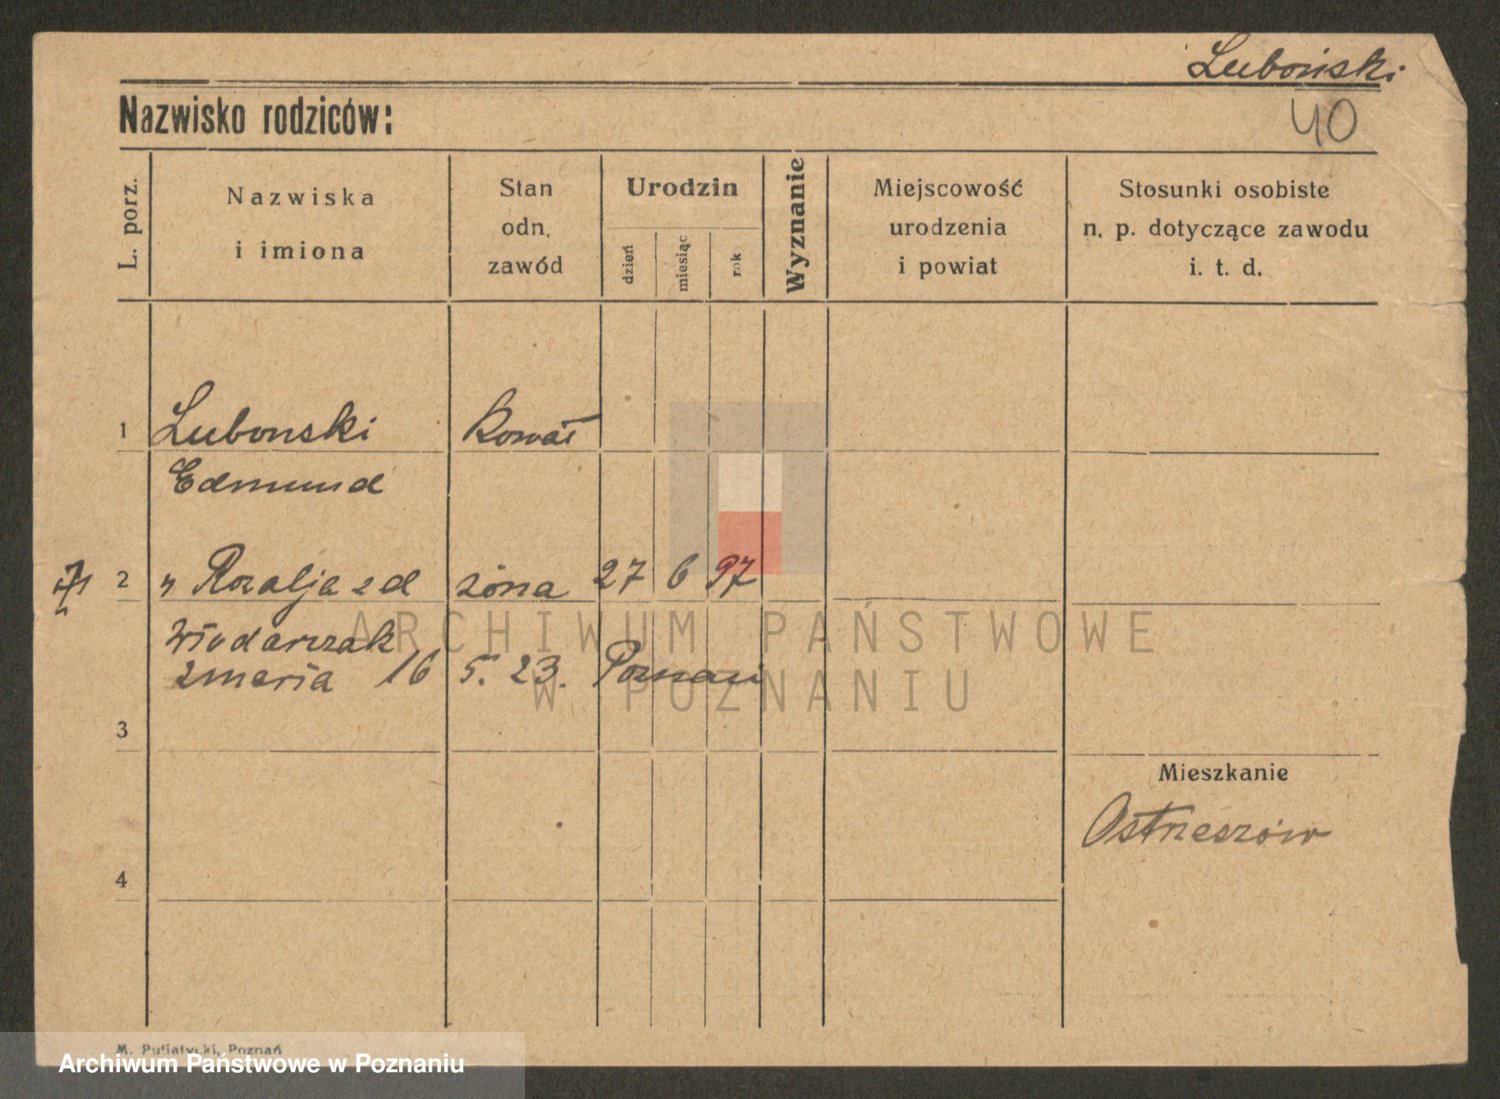 Luboński
Nazwisko rodziców:
40
L. porz.
Nazwiska
i imiona
Stan
odn.
zawód
Urodzin
dzień
miesiąc
rok
Wyznanie
Miejscowość
urodzenia
i powiat
Stosunki osobiste
n. p. dotyczące zawodu
i. t. d.
1 Lubonski kowal
Edmund
2 " Rozalja zd żona 27 6 97
Włodarczak
zmarła 16 5. 23. Poznań
3
Mieszkanie
Ostrzeszów
4
ARCHIWUM PAŃSTWOWE
W POZNANIU
M. Putiatycki, Poznań
Archiwum Państwowe w Poznaniu